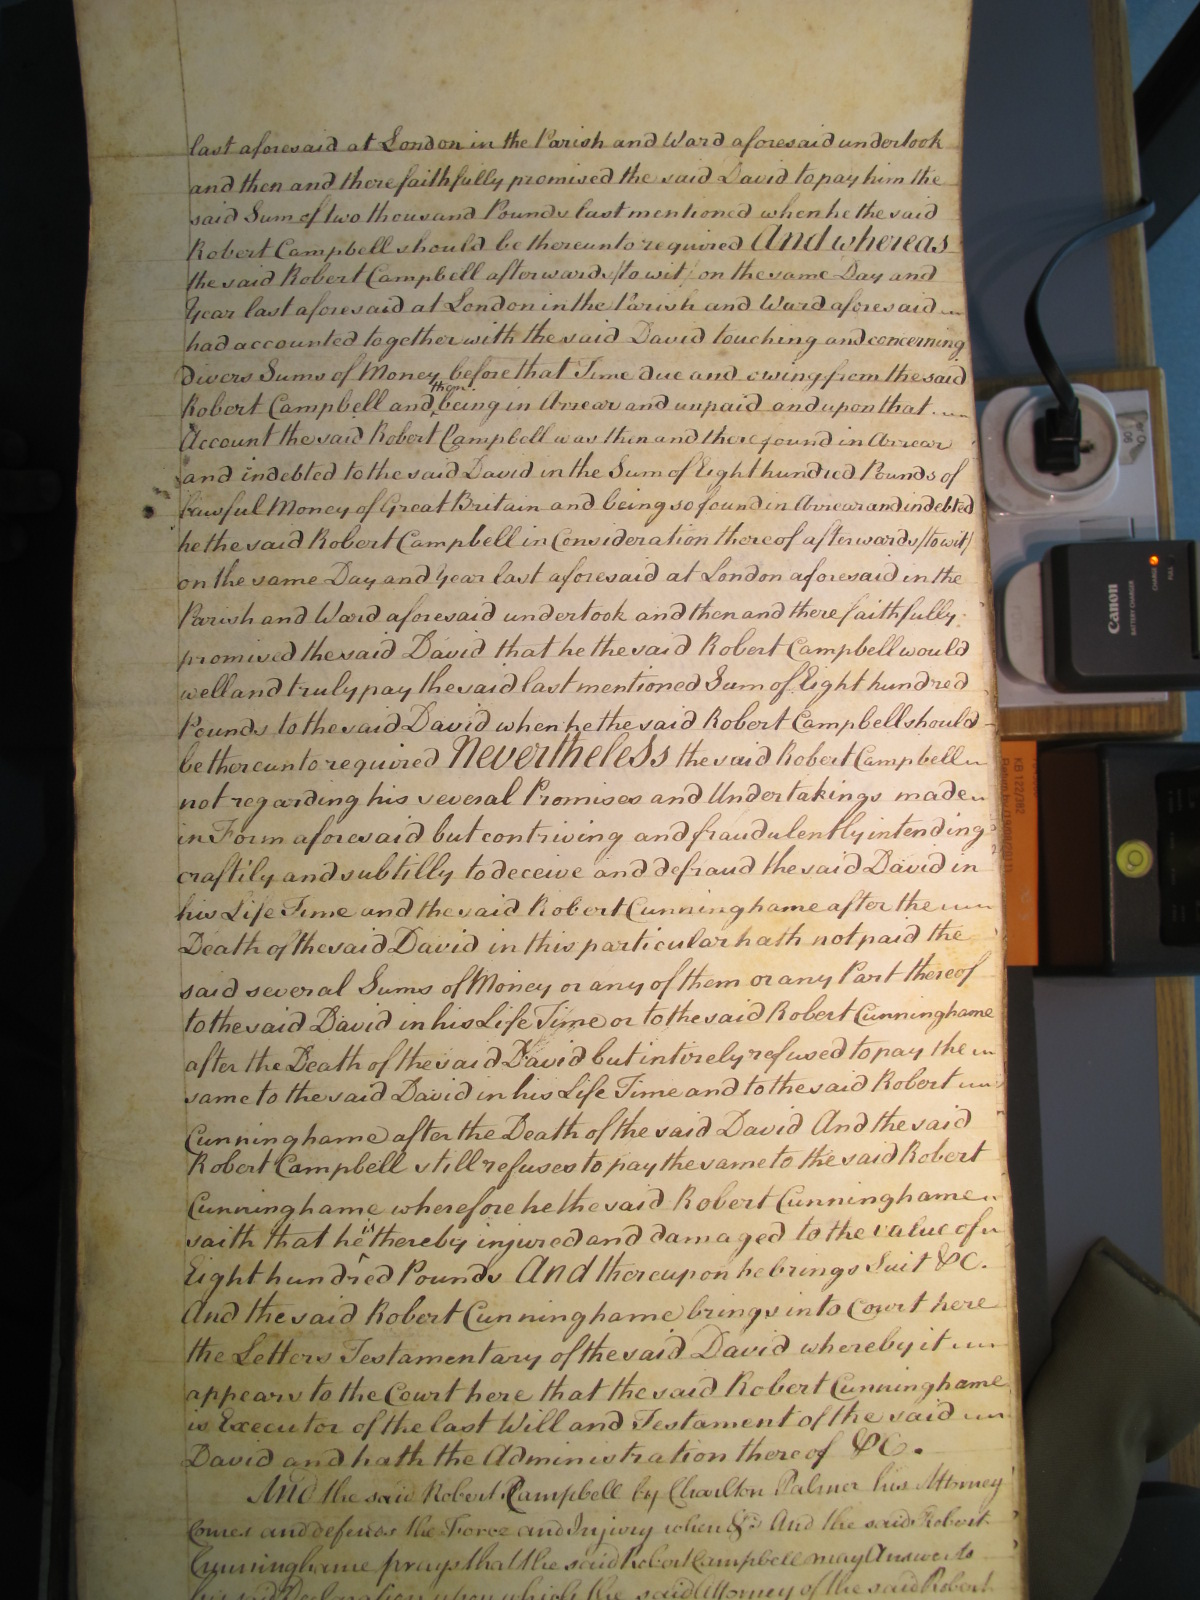 last aforesaid at London in the Parish and Ward aforesaid undertook
and then and there faithfully promised the said David to pay him the
said Sum of two thousand Pounds last mentioned when he the said
Robert Campbell should be thereunto required And whereas
the said Robert Campbell afterwards /to wit/ on the same Day and
Year last aforesaid at London in the Parish and Ward aforesaid
had accounted together with the said David touching and concerning
divers Sums of Money before that Time due and owing from the said
then
Robert Campbell and being in Arrear and unpaid and upon that
Account the said Robert Campbell was then and there found in Arrear
and indebted to the said David in the Sum of Eight hundred Pounds of
lawful Money of Great Britain and being so found in Arrear and indebted
he the said Robert Campbell in Consideration thereof afterwards /to wit/
on the same Day and Year last aforesaid at London aforesaid in the
Parish and Ward aforesaid undertook and then and there faithfully
promised the said David that he the said Robert Campbell would
well and truly pay the said last mentioned Sum of Eight hundred
Pounds to the said David when he the said Robert Campbell should
be thereunto required Nevertheless the said Robert Campbell
not regarding his several Promises and Undertakings made
in Form aforesaid but contriving and fraudulently intending
craftily and subtilly to deceive and defraud the said David in
his Life Time and the said Robert Cunninghame after the
Death of the said David in this particular hath not paid the
said several Sums of Money or any of them or any Part thereof
to the said David in his Life Time or to the said Robert Cunninghame
after the Death of the said David but intirely refused to pay the
same to the said David in his Life Time and to the said Robert
Cunninghame after the Death of the said David And the said
Robert Campbell still refuses to pay the same to the said Robert
Cunninghame wherefore he the said Robert Cunninghame
is
saith that he thereby injured and damaged to the value of
Eight hundred Pounds And thereupon he brings Suit &C.
And the said Robert Cunninghame brings into Court here
the Letters Testamentary of the said David whereby it
appears to the Court here that the said Robert Cunninghame
is Executor of the last Will and Testament of the said
David and hath the Administration thereof &C.
And the said Robert Campbell by Charlton Palmer his Attorney
Comes and defends the Force and Injury when &c And the said Robert
Cunninghame prays that the said Robert Campbell may Answer to
his said Declaration upon which the said Attorney of the said Robert
Canon
BATTERY CHARGER
CHARGE
FULL
KB 122/282